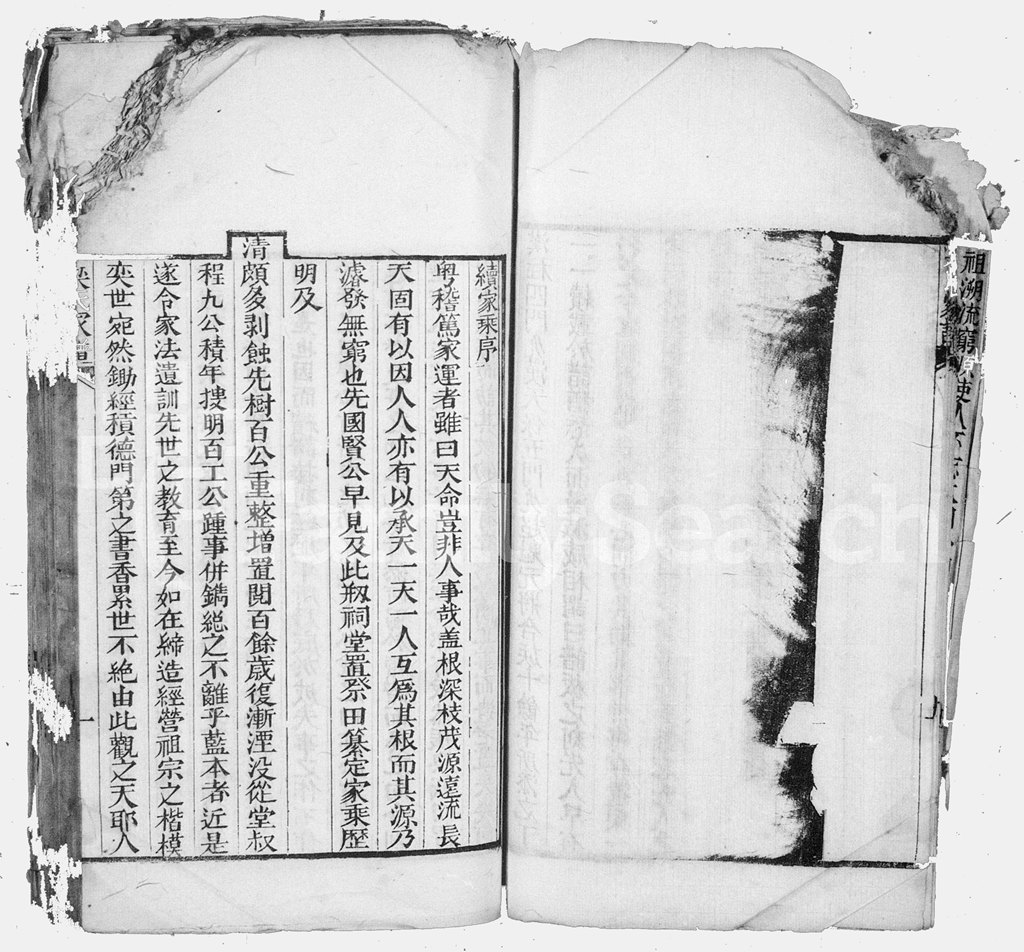 續家乘序
粤稽篤家運者雖曰天命豈非人事哉盖根深枝茂源遠流長
天固有以因人人亦有以承天一天一人互爲其根而其源乃
濬發無窮也先國賢公早見及此刱祠堂置祭田纂定家乘歴
明及
清頗多剥蝕先樹百公重整增置閲百餘歲復漸湮没從堂叔
程九公積年搜明百工公踵事併鐫總之不離乎藍本者近是
遂令家法遺訓先世之教育至今如在締造經營祖宗之楷模
奕世宛然鋤經積德門第之書香累世不絶由此觀之天耶人
一
祖溯流窮源使人
九